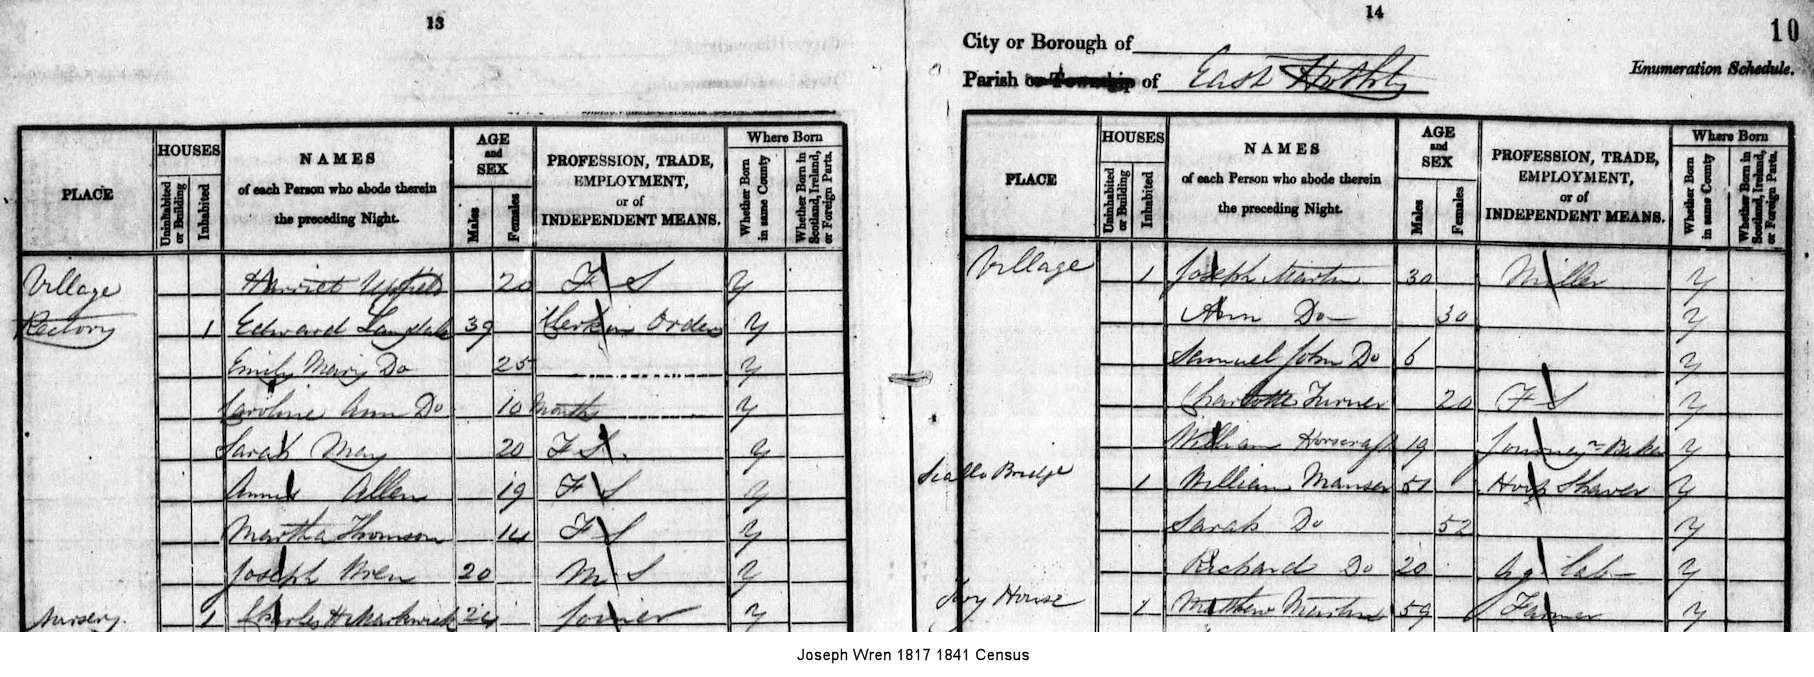 13
PLACE
HOUSES
Uninhabited or Building
Inhabited
NAMES
of each Person who abode therein
the preceding Night.
AGE
and
SEX
Males
Females
PROFESSION, TRADE,
EMPLOYMENT,
or of
INDEPENDENT MEANS.
Where Born
Whether Born in same County
Whether Born in Scotland, Ireland, or Foreign Parts.
Village Harriet 20 F S Y
Rectory 1 Edward Langdale 39 Clerk in Orders Y
Emily Mary Do 25 Y
Caroline Ann Do 10 Months Y
Sarah May 20 F S. Y
Allen 19 F S Y
Martha Thomson 14 F S Y
Joseph Wren 20 M S Y
Nursery 1 Charles H Markwick 24 Joiner Y
14
10
City or Borough of
Parish or Township of East Hothly
Enumeration Schedule.
PLACE
HOUSES
Uninhabited or Building
Inhabited
NAMES
of each Person who abode therein
the preceding Night.
AGE
and
SEX
Males
Females
PROFESSION, TRADE,
EMPLOYMENT,
or of
INDEPENDENT MEANS.
Where Born
Whether Born in same County
Whether Born in Scotland, Ireland, or Foreign Parts.
Village 1 Joseph Martin 30 Miller Y
Ann Do 30 Y
Samuel John Do 6 Y
Charlotte Turner 20 F S Y
William Horscraft 19 Journeyn Baker Y
Bridge 1 William Manser 51 Hoop Shaver Y
Sarah Do 52 Y
Richard Do 20 Ag Lab Y
Ivy House 1 Matthew Martin 59 Farmer Y
Joseph Wren 1817 1841 Census